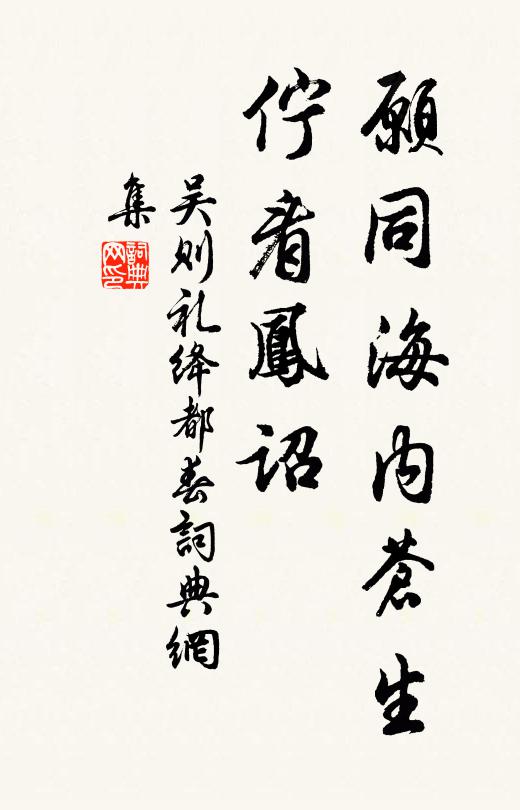 願同海内蒼生
佇看鳳詔
吴则礼绛都春詞典網
集
詞典网印